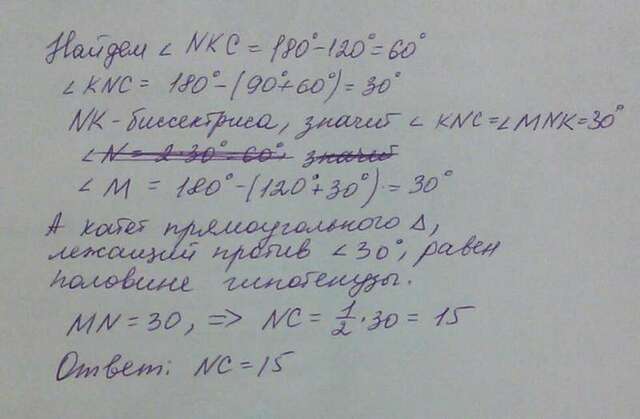 Найдем ∠ NKC = 180° - 120° = 60°
∠ KNC = 180° - (90° + 60°) = 30°
NK - биссектриса, значит ∠ KNC = ∠ MNK = 30°
∠ N = 2·30° = 60° значит
∠ M = 180° - (120° + 30°) = 30°
А катет прямоугольного Δ,
лежащий против ∠ 30°, равен
половине гипотенузы.
MN = 30, => NC = 1/2 · 30 = 15
Ответ: NC = 15